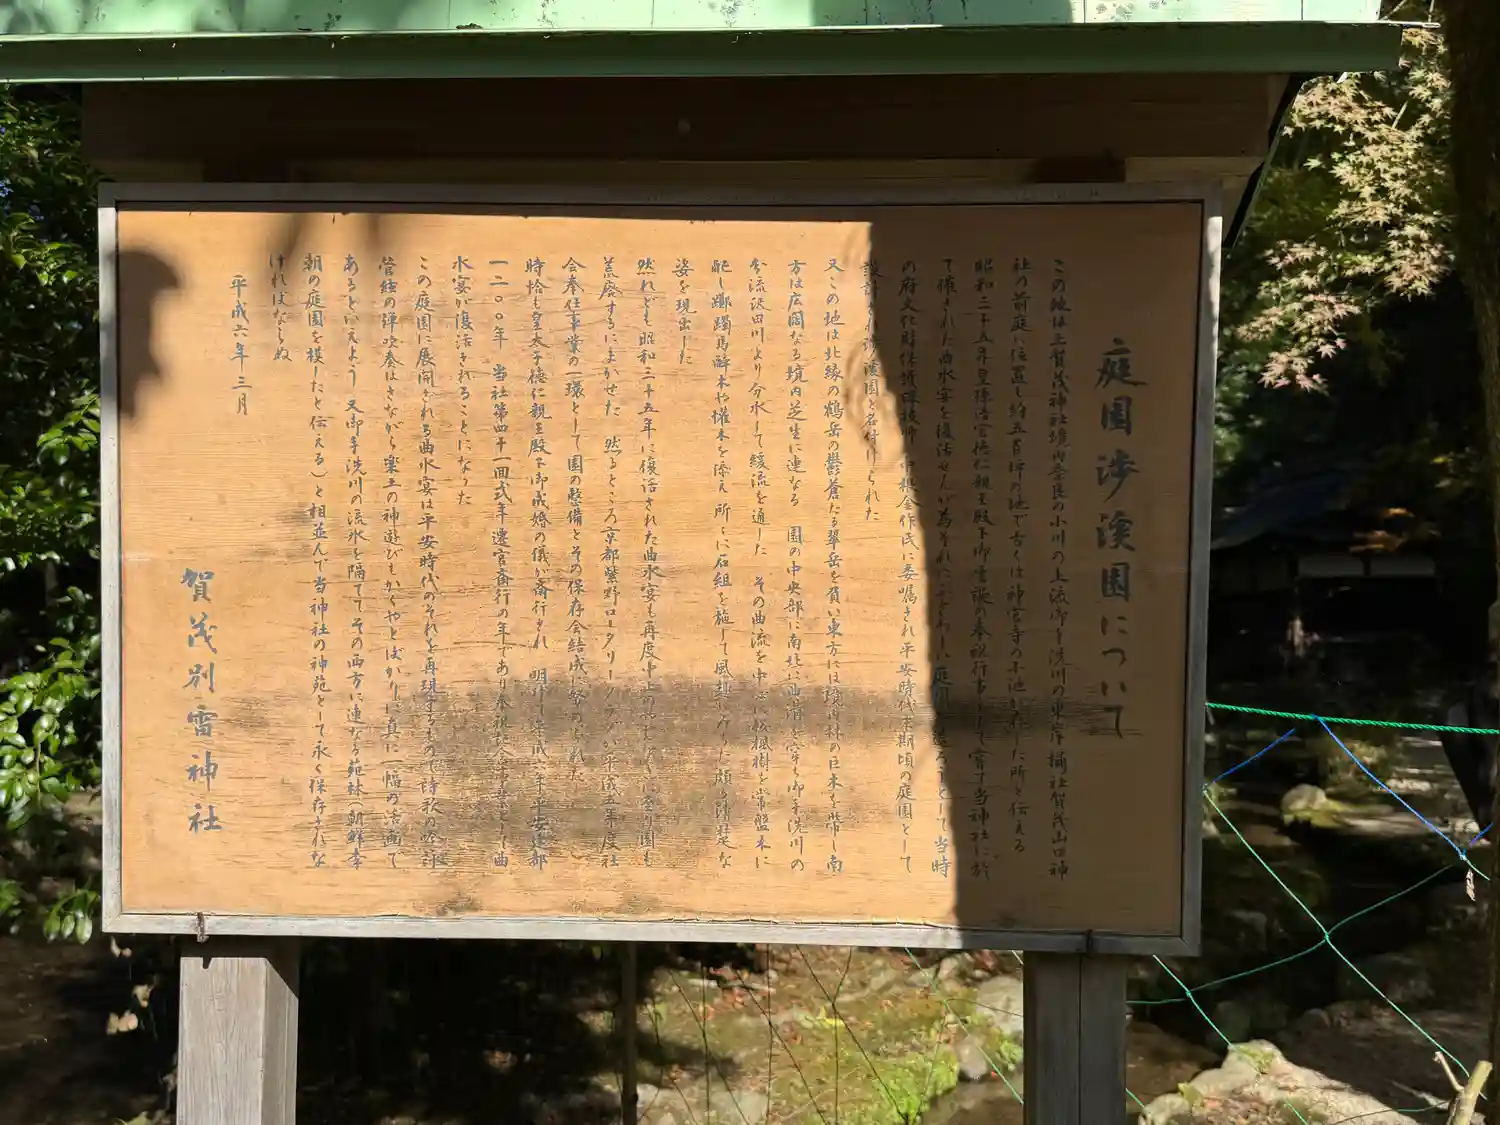 庭園渉溪園について
この地は上賀茂神社境内奈良の小川の上流御手洗川の東岸摂社賀茂山口神
社の前庭に位置し約五百坪の地で古くは神宮寺の小池があった所と伝える
昭和三十五年皇孫浩宮徳仁親王殿下御生誕の奉祝行事として嘗て当神社に於
て催された曲水宴を復活せんが為それにふさわしい庭園を造ろうとして当時
の府文化財保護課技師 中根金作氏に委嘱され平安時代末期頃の庭園として
設計され渉溪園と名付けられた
又この地は北縁の鶴岳の鬱蒼たる翠岳を負い東方には境内林の巨木を帯し南
方は広闊なる境内芝生に連なる 園の中央部に南北に曲溝を穿ち御手洗川の
分流沢田川より分水して緩流を通した その曲流を中心に松楓樹を常盤木に
配し躑躅馬酔木や潅木を添え 所々に石組を施して風趣に
姿を現出した
然れども昭和三十五年に復活された曲水宴も再度中止の
荒廃するにまかせた 然るところ京都紫野ロータリークラブが平成五年度社
会奉仕事業の一環として園の整備とその保存会結成に努められた
時恰も皇太子徳仁親王殿下御成婚の儀が斎行され 明けて平成六年は平安建都
一二〇〇年 当社第四十一回式年遷宮斎行の年であり奉祝記念事業として曲
水宴が復活されることになった
この庭園に展開される曲水宴は平安時代のそれを再現するもので詩歌の吟詠
管絃の弾吹奏はさながら楽土の神遊びもかくやとばかりに真に一幅の活画で
あるといえよう 又御手洗川の流水を隔ててその西方に連なる苑林(朝鮮李
朝の庭園を模したと伝える)と相並んで当神社の神苑として永く保存されな
ければならぬ
平成六年三月
賀茂別雷神社